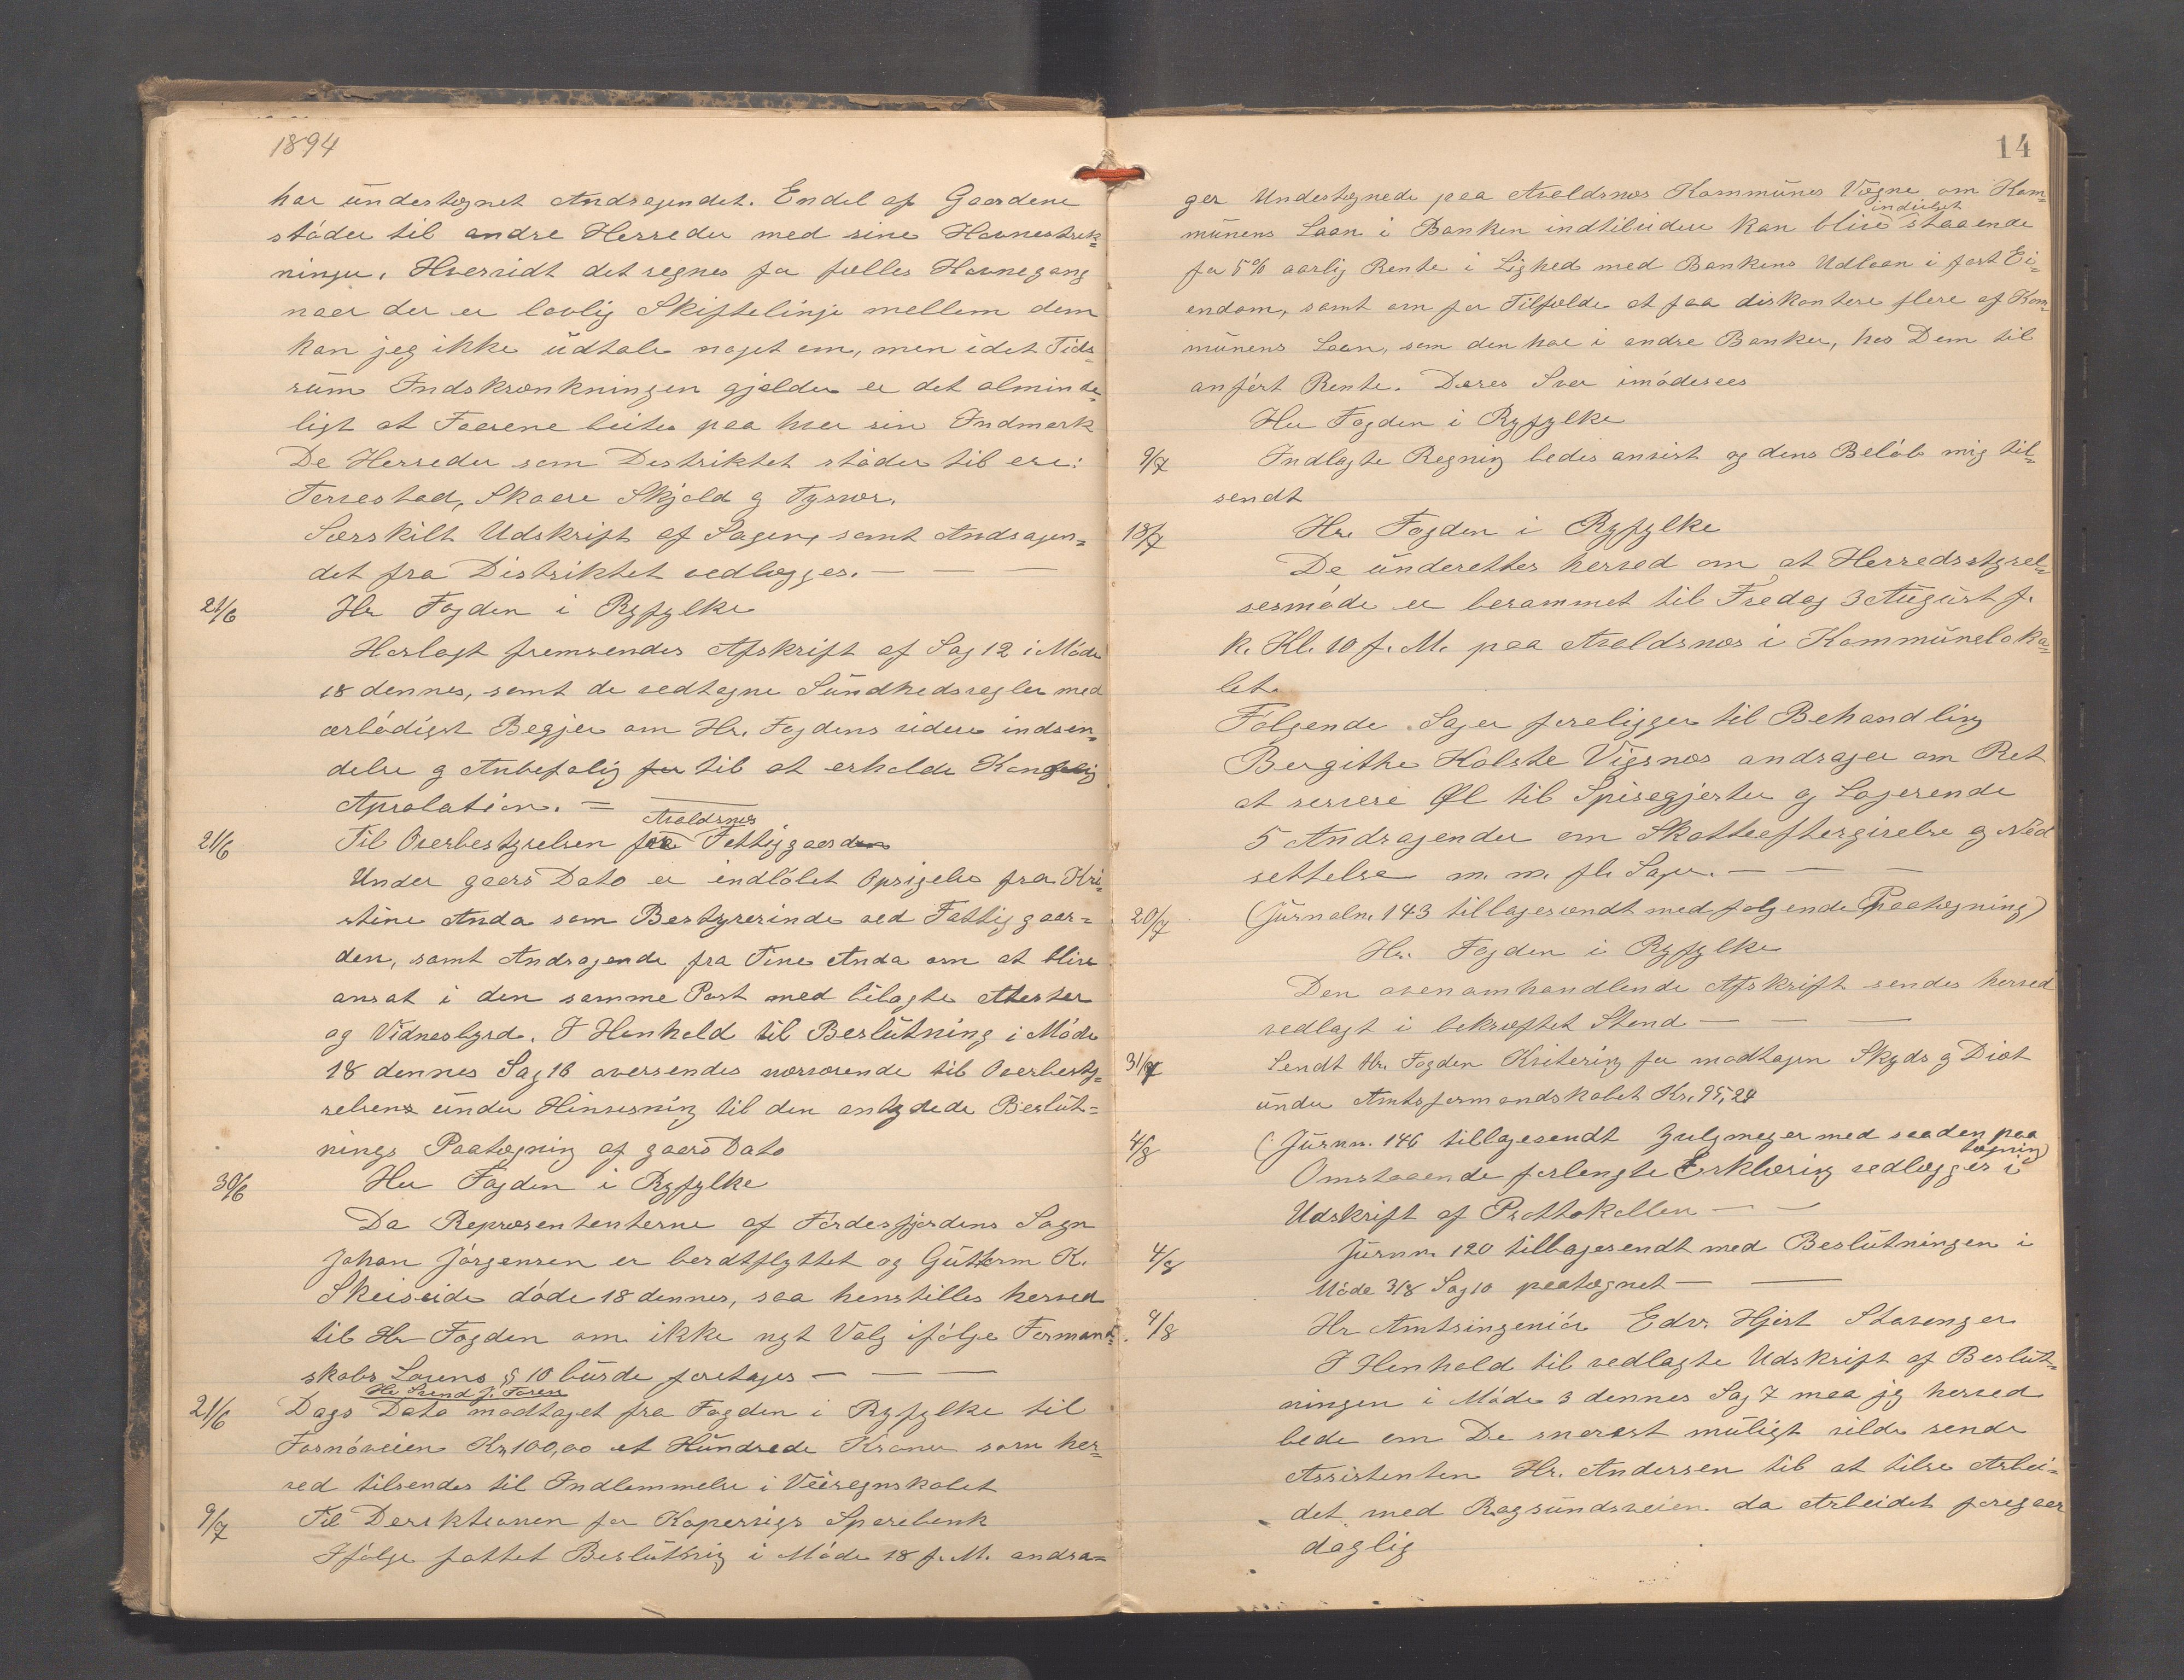 1894
har undertegnet Andragendet. Endel af Gaardene
støder til andre Herreder med sine Havnestræk=
ninger. Hvorvidt det regnes for fælles Havnegang
naar der er lovlig Skiftelinje mellem dem
kan jeg ikke udtale noget om, men i det Tids
rum Indskrænkningen gjelder er det alminde=
ligt at Faarene beites paa hver sin Indmark
De Herreder som Destriktet støder til ere:
Torvestad, Skaare Skjold og Tysvær.
Særskilt Udskrift af Sagen, samt Andragen=
det fra Distriktet vedlægges. — — —
21/6 Hr Fogden i Ryfylke
Herlagt fremsendes Afskrift af Sag 12 i Møde
18 dennes, samt de vedtagne Sundhedsregler med
ærbødigst Begjer om Hr. Fogdens videre indsen=
delse og Anbefalig for til at erholde Kongelig
Aprobation. =
21/6 Til Overbestyrelsen for Avaldsnes Fattiggaarden
Under gaars Dato er indløbet Opsigelse fra Kri=
stine Anda som Bestyrerinde ved Fattiggaar=
den, samt Andragende fra Tine Anda om at blive
ansat i den samme Post med bilagte Attester
og Vidnesbyrd. I Henhold til Beslutning i Møde
18 dennes Sag 16 oversendes nærværende til Overbesty=
relsen under Hinvisning til den antydede Beslut=
nings Paategning af gaars Dato
30/6 Hr Fogden i Ryfylke
Da Repræsententerne af Førdesfjordens Sogn
Johan Jørgensen er bordtflyttet og Guttorm K.
Skeiseide døde 18 dennes, saa henstilles herved
til Hr Fogden om ikke nyt Valg ifølge Formand=
skabs Lovens § 10 burde foretages — — —
Hr Svend J. Fosen
21/6 Dags Dato modtaget fra Fogden i Ryfylke til
Fosnøveien Kr 100,00 et Hundrede Kroner som her=
ved tilsendes til Indlemmelse i Veiregnskabet
9/7 Til Derektionen for Kopervigs Sparebank
Ifølge fattet Beslutning i Møde 18 f. M. andra=
14
ger Undertegnede paa Avaldsnes Kommunes Vegne om Kom=
munens Laan i Banken indtilvidere kan blive indvilget staaende
for 5% aarlig Rente i Lighed med Bankens Udlaan i fast Ei=
endom, samt om for Tilfælde at faa diskontere flere af Kom=
munens Laan, som den har i andre Banker, hos Dem til
anført Rente. Deres Svar imødesees
Hr Fogden i Ryfylke
9/7 Indlagte Regning bedes anvist og dens Beløb mig til=
sendt
18/7 Hr. Fogden i Ryfylke
De underettes herved om at Herredsstyrel=
sesmøde er berammet til Fredag 3 August f.
k. Kl. 10 f. M. paa Avaldsnes i Kommuneloka=
let.
Følgende Sager foreligger til Behandling
Bergithe Kolste Vigsnes andrager om Ret
at servere Øl til Spisegjester og Logerende
5 Andragender om Skatteeftergivelse og Ned
settelse m. m. fl. Sager. — — —
20/7 (Jurnaln. 143 tilbagesendt med følgende Paategning)
Hr. Fogden i Ryfylke
Den ovenomhandlende Afskrift sendes herved
vedlagt i bekræftet Stand — — —
31/7 Sendt Hr. Fogden Kvitering for modtagen Skyds og Diæt
under Amtsformandskabet Kr. 95,24
4/8 (Jurnn. 146 tilbagesendt med saaden paa
tegning)
Omstaaende forlangte Erklæring vedlægges i
Udskrift af Prottokollen — —
4/8 Jurnn. 120 tilbagesendt med Beslutningen i
Møde 3/8 Sag 10 paategnet — —
4/8 Hr Amtsingeniør Edv. Hjort Stavanger
I Henhold til vedlagte Udskrift af Beslut=
ningen i Møde 3 dennes Sag 7 maa jeg herved
bede om De snarest muligt vilde sende
Assistenten Hr. Andersen til at tilse Arbei=
det med Røgsundsveien da Arbeidet foregaar
daglig